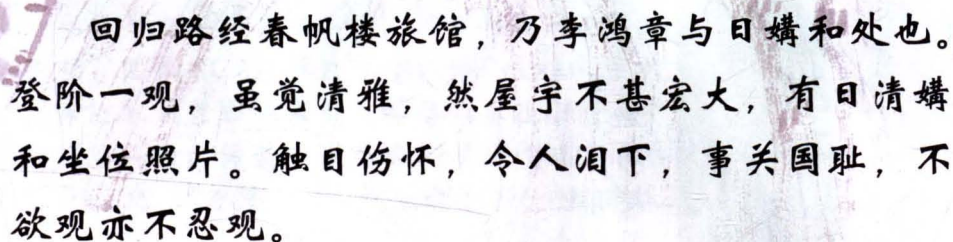 回归路经春帆楼旅馆，乃李鸿章与日媾和处也。
登阶一观，虽觉清雅，然屋宇不甚宏大，有日清媾
和坐位照片。触目伤怀，令人泪下，事关国耻，不
欲观亦不忍观。